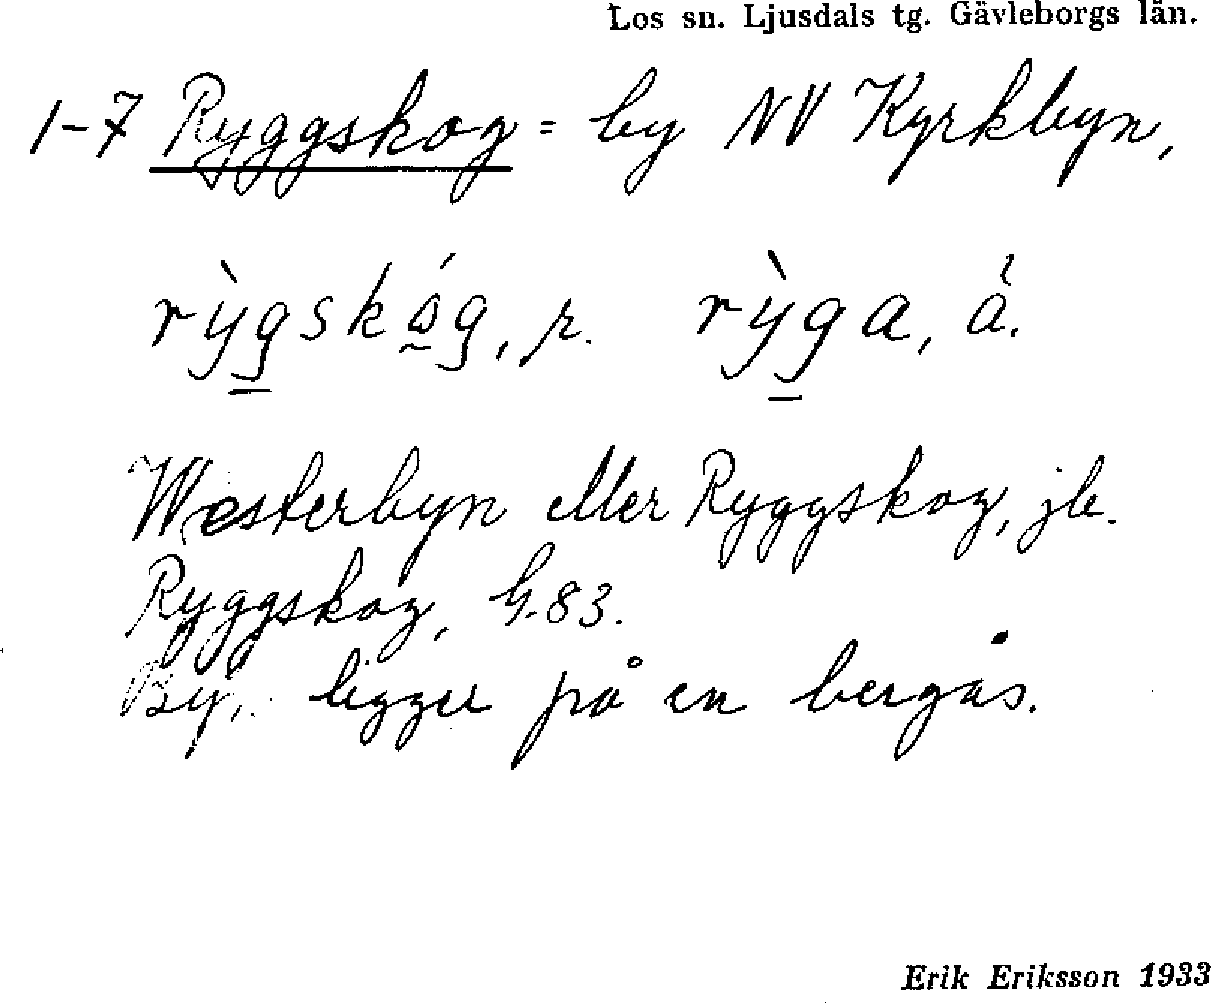 Los sn. Ljusdals tg. Gävleborgs län.
1-7 Ryggskog = by NV Kyrkbyn,
rỳgskóg, r. rỳga, å.
Westerbyn eller Ryggskog, jb.
Ryggskog, G.83.
By, ligger på en bergås.
Erik Eriksson 1933